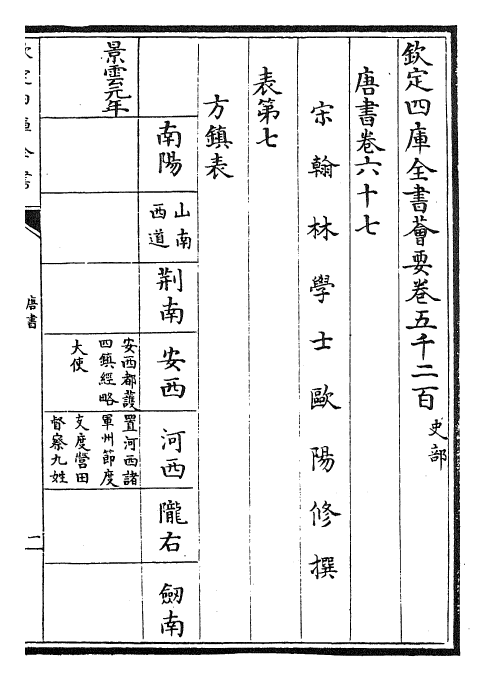 欽定四庫全書薈要卷五千二百
史部
唐書卷六十七
宋翰林學士歐陽修撰
表第七
方鎮表
南陽
山南
西道
荆南
安西
河西
隴右
劒南
景雲元年
安西都護
四鎮經略
大使
置河西諸
軍州節度
支度營田
督察九姓
唐書